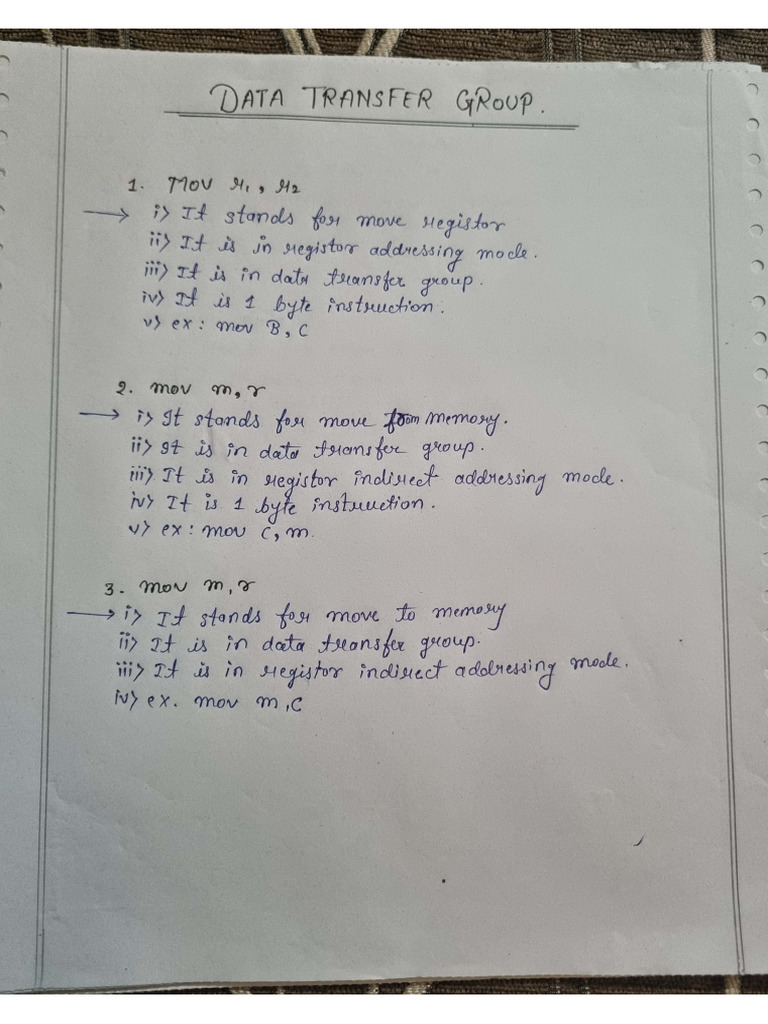 DATA TRANSFER GROUP.
1. MOV r1, r2
→ i) It stands for move registor
ii) It is in registor addressing mode.
iii) It is in data transfer group.
iv) It is 1 byte instruction.
v) ex: mov B, C
2. mov m, r
→ i) It stands for move from memory.
ii) It is in data transfer group.
iii) It is in registor indirect addressing mode.
iv) It is 1 byte instruction.
v) ex: mov C, m.
3. mov m, r
→ i) It stands for move to memory
ii) It is in data transfer group.
iii) It is in registor indirect addressing mode.
iv) ex. mov m, C